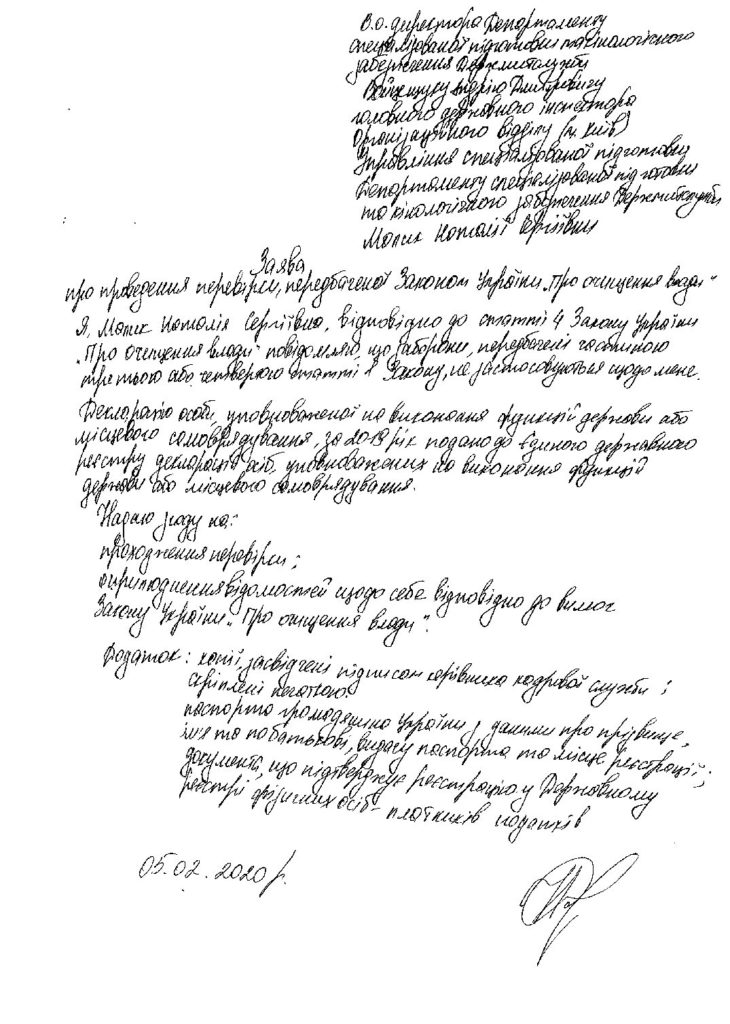 В.о. директора Департаменту
спеціалізованої підготовки та кінологічного
забезпечення Держмитслужби
Андрію Дмитровичу
головного державного інспектора
Організаційного відділу (м. Київ)
Управління спеціалізованої підготовки
Департаменту спеціалізованої підготовки
та кінологічного забезпечення Держмитслужби
Малик Наталії Сергіївни
Заява
про проведення перевірки, передбаченої Законом України „Про очищення влади"
Я, Малик Наталія Сергіївна, відповідно до статті 4 Закону України
„Про очищення влади" повідомляю, що заборони, передбачені частиною
третьою або четвертою статті 1 Закону, не застосовуються щодо мене.
Декларацію особи, уповноваженої на виконання функцій держави або
місцевого самоврядування, за 2019 рік подано до Єдиного державного
реєстру декларацій осіб, уповноважених на виконання функцій
держави або місцевого самоврядування.
Надаю згоду на:
проходження перевірки;
оприлюднення відомостей щодо себе відповідно до вимог
Закону України „Про очищення влади".
Додаток: копії, засвідчені підписом керівника кадрової служби і
скріплені печаткою:
паспорта громадянина України з даними про прізвище,
ім'я та по батькові, видачу паспорта та місце реєстрації;
документа, що підтверджує реєстрацію у Державному
реєстрі фізичних осіб - платників податків
05.02.2020 р.